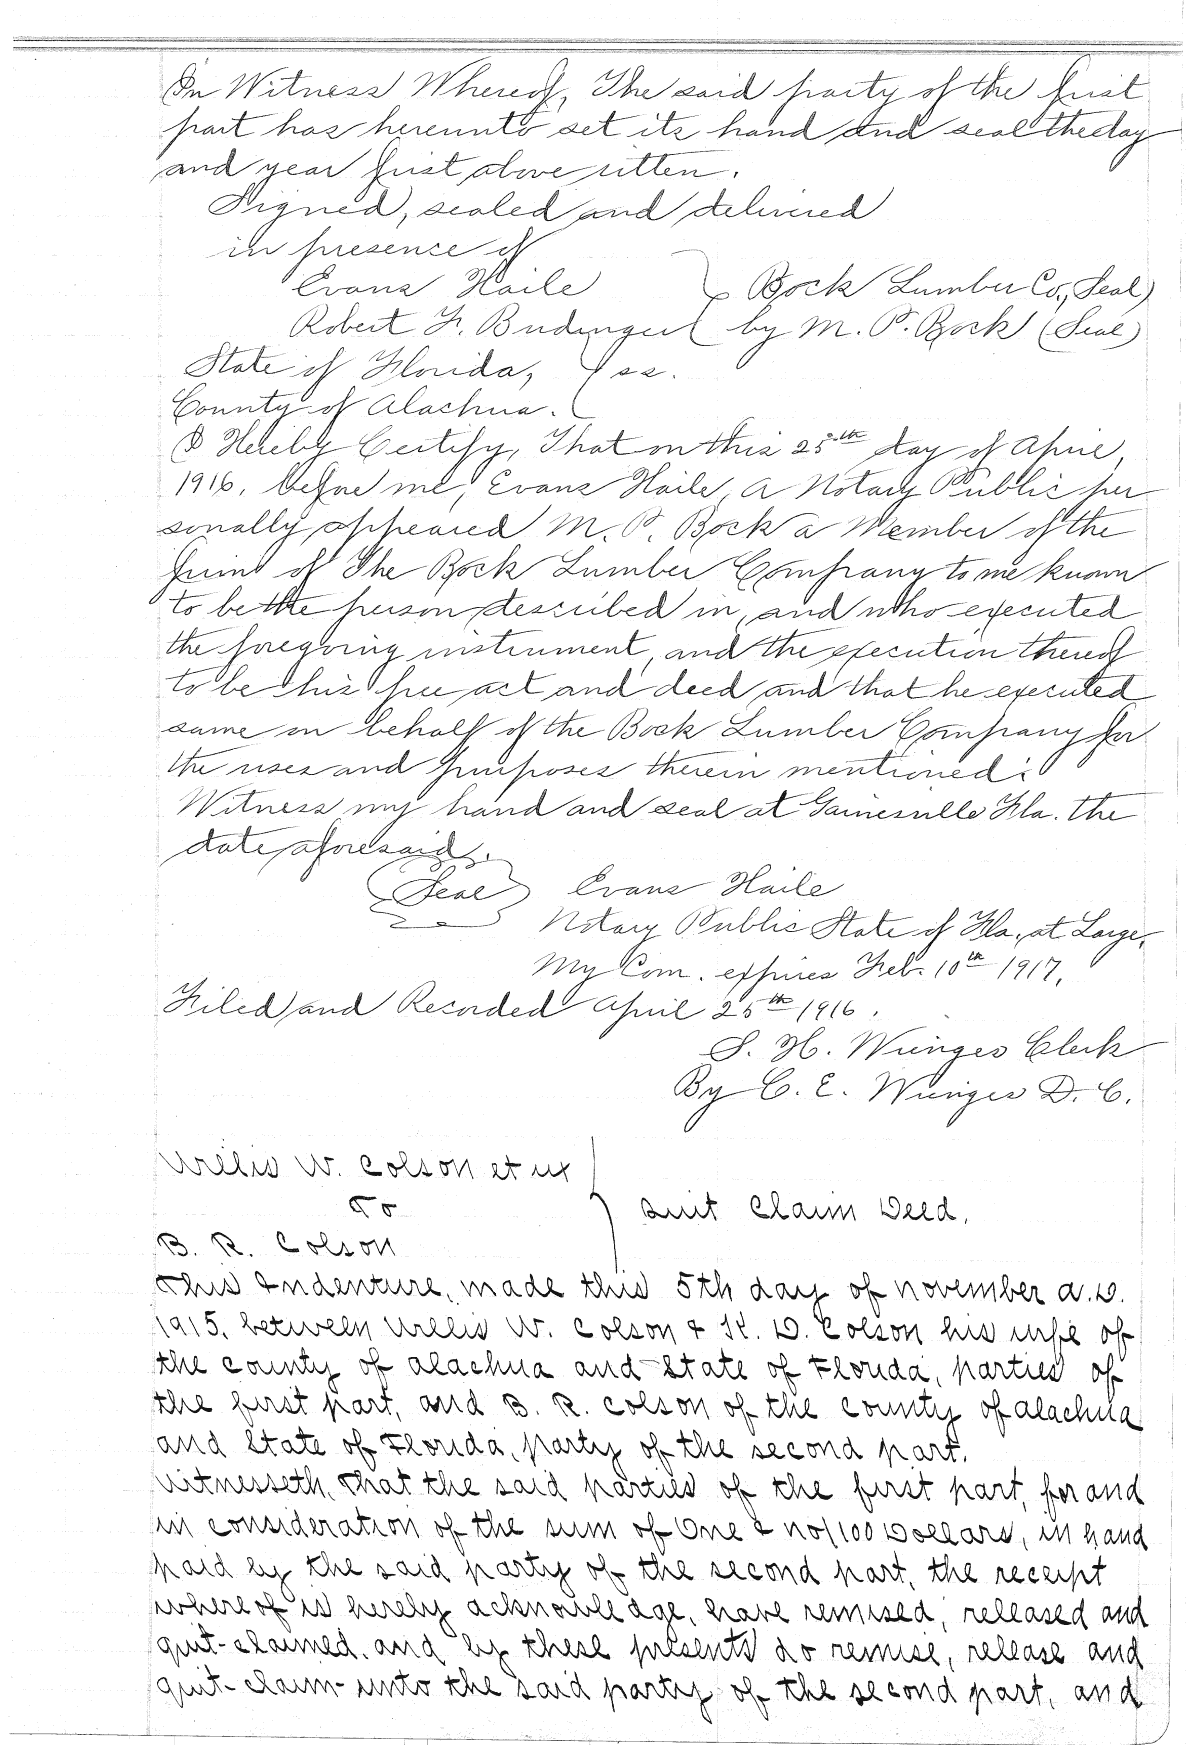 In Witness Whereof, The said party of the first
part has hereunto set its hand and seal the day
and year first above ritten.
Signed, sealed and delivered
in presence of
Evans Haile } Bock Lumber Co., Seal)
Robert F. Budinger ( by M. P. Bock (Seal)
State of Florida, ( ss.
County of Alachua. (
I Hereby Certify, That on this 25th day of April,
1916, before me, Evans Haile, a Notary Public per
sonally appeared M. P. Bock a Member of the
firm of The Bock Lumber Company to me known
to be the person described in, and who executed
the foregoing instrument, and the execution thereof
to be his free act and deed and that he executed
same on behalf of the Bock Lumber Company for
the uses and purposes therein mentioned:
Witness my hand and seal at Gainesville Fla. the
date aforesaid.
(Seal) Evans Haile
Notary Public State of Fla., at Large,
My Com. expires Feb. 10th 1917.
Filed and Recorded April 25th 1916.
S. H. Wienges Clerk
By C. E. Wienges D. C.
Willis W. Colson et ux
To } Quit Claim Deed.
B. R. Colson
This Indenture, made this 5th day of November A.D.
1915, between Willis W. Colson & K. D. Colson his wife of
the county of Alachua and State of Florida, parties of
the first part, and B. R. Colson of the county of Alachua
and State of Florida, party of the second part.
Witnesseth, That the said parties of the first part, for and
in consideration of the sum of One & no/100 Dollars, in hand
paid by the said party of the second part, the receipt
whereof is hereby acknowledge, have remised, released and
quit-claimed, and by these presents do remise, release and
quit-claim unto the said party of the second part, and